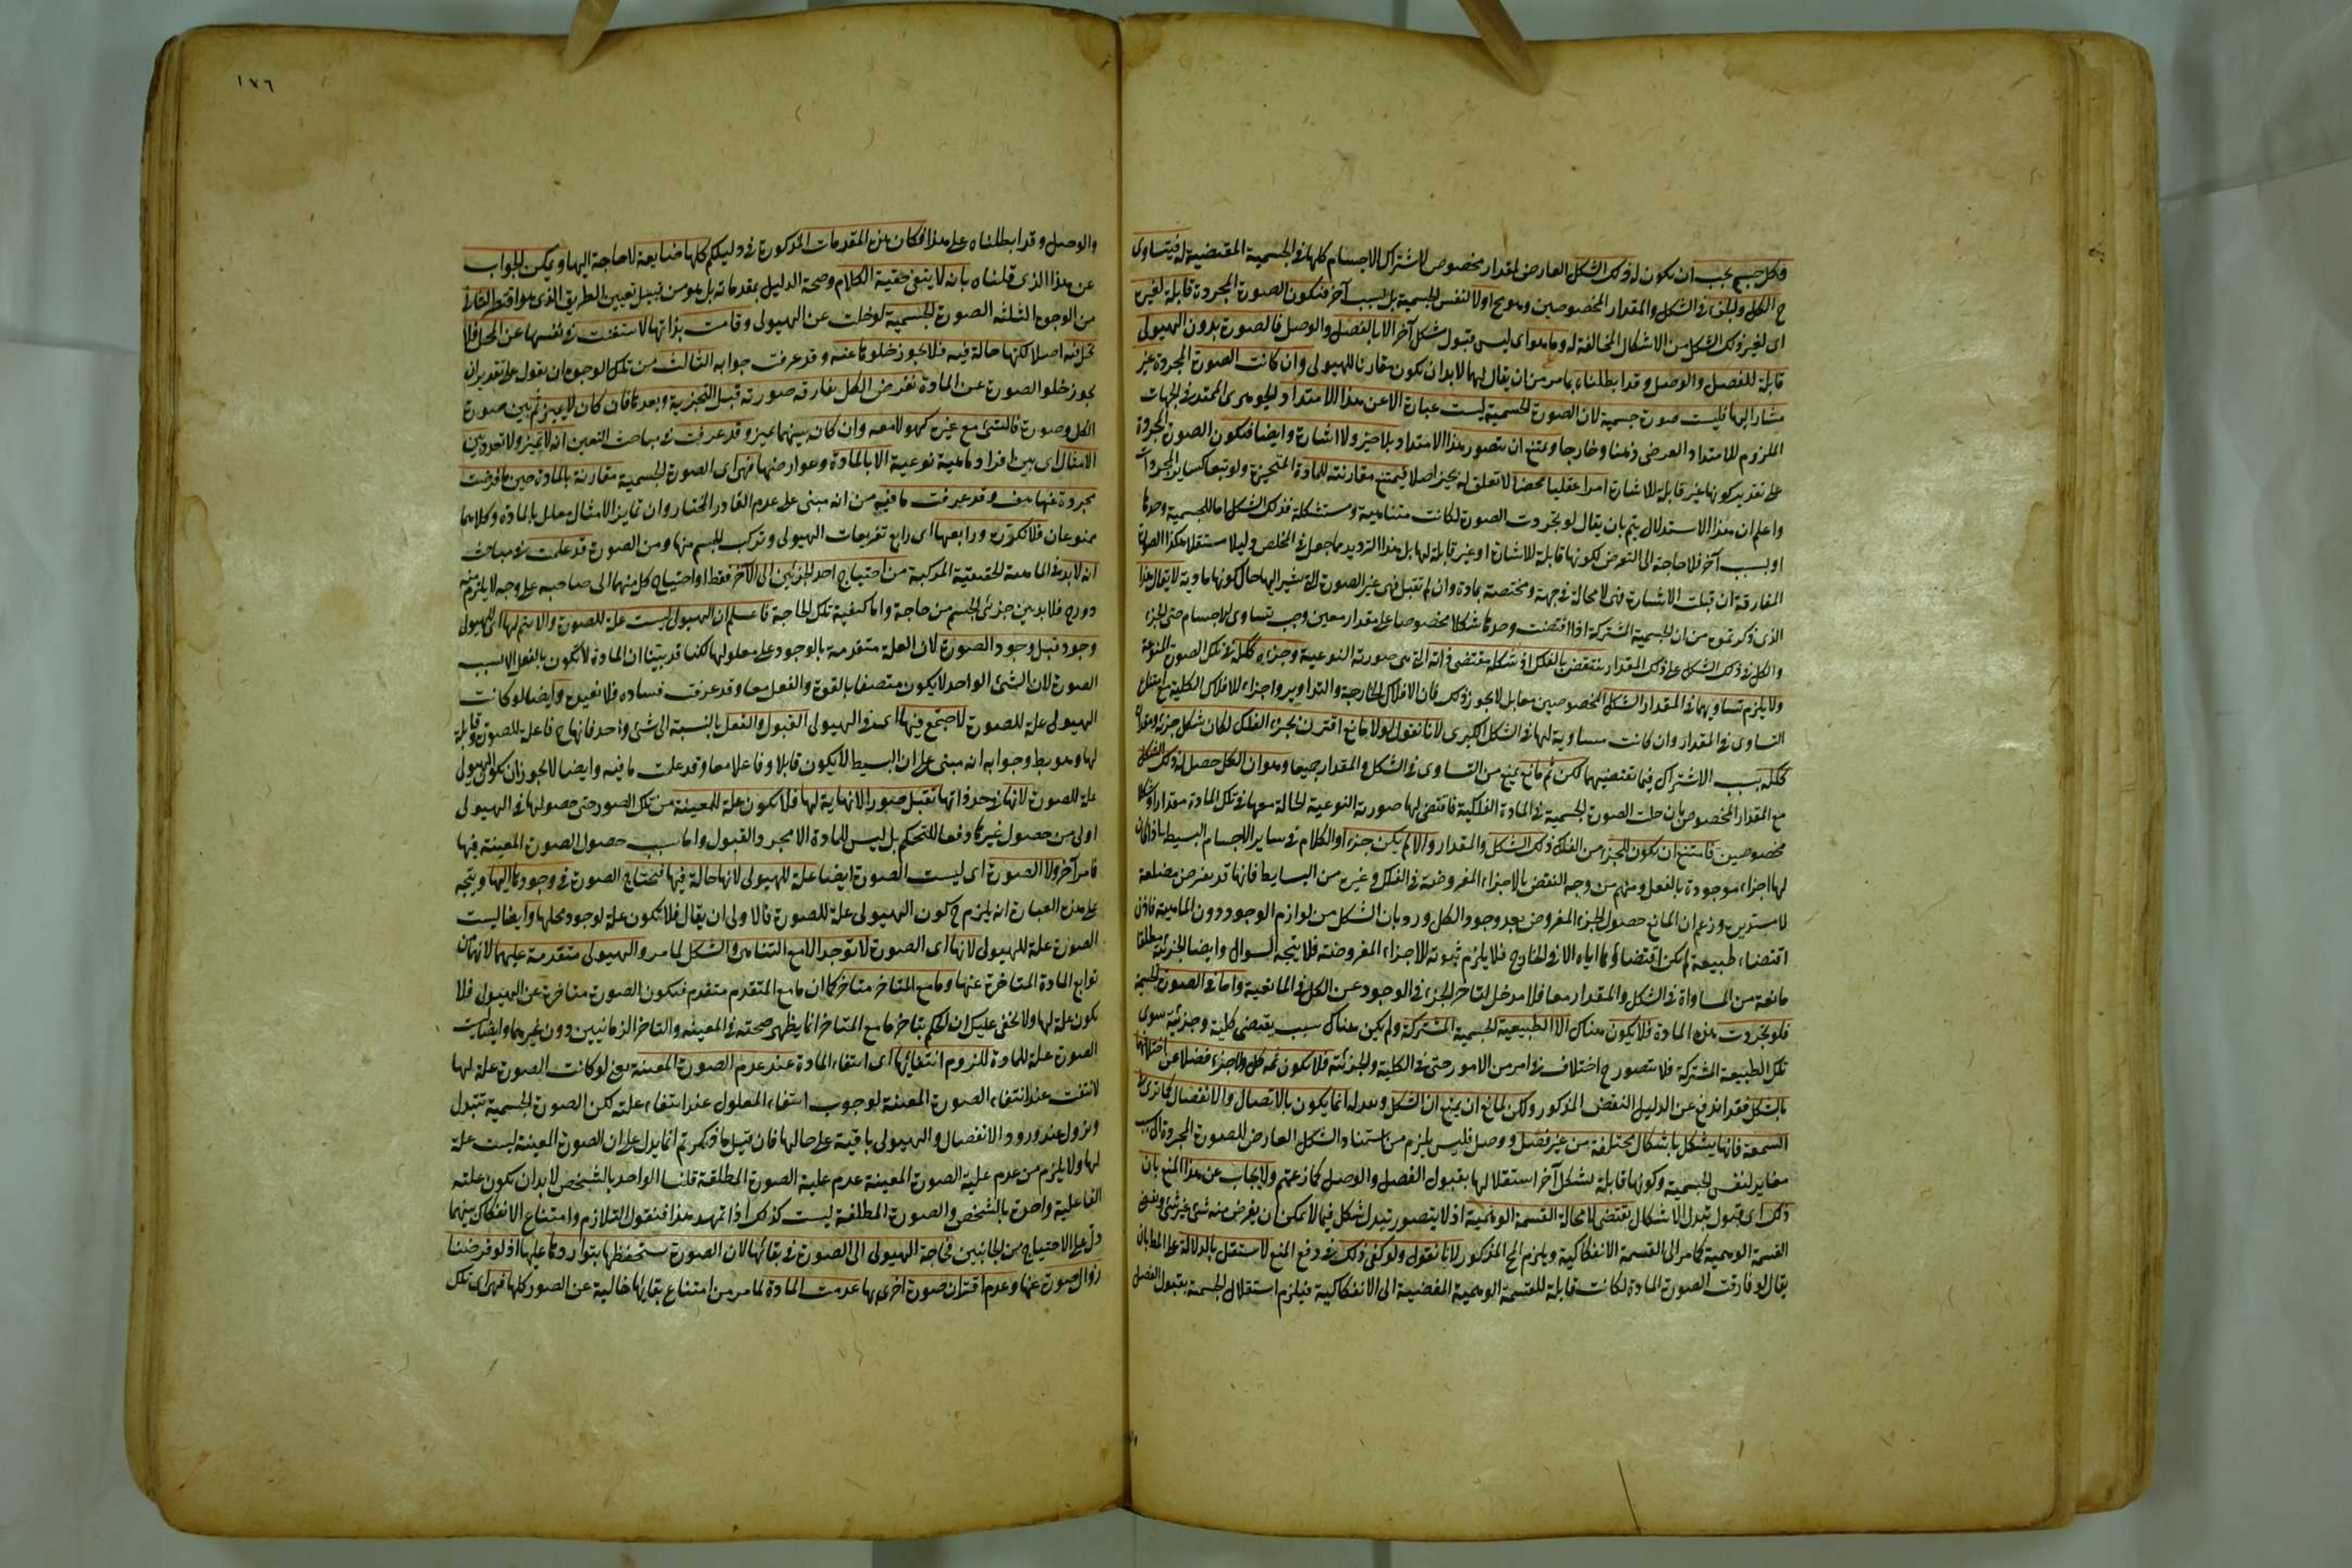 وكل جسم يجب ان يكون له ذلك الشكل العارض لمقدار مخصوص لاشتراك الاجسام كلها في الجسمية المقتضية له فيتساوى
ح الكل والجزء في الشكل والمقدار المخصوصين وهو مح اولا لنفس الجسمية بل لسبب آخر فتكون الصورة المجردة قابلة لغيره
اى لغير ذلك الشكل من الاشكال المخالفة له وما هو اى ليس قبول شكل آخر الا بالفصل والوصل فالصورة بدون الهيولى
قابلة للفصل والوصل وقد ابطلناه بما مر من ان يقال لهما لا بد ان يكون مقارنا للهيولى وان كانت الصورة المجردة غير
مشار اليها فليست صورة جسمية لان الصورة الجسمية ليست عبارة الا عن هذا الامتداد الجوهرى الممتد في الجهات
الملزوم للامتداد العرضى ذهنا وخارجا ويمتنع ان يتصور هذا الامتداد بلا حيز ولا اشارة وايضا فتكون الصورة المجردة
على تقدير كونها غير قابلة للاشارة امرا عقليا محضا لا تعلق له بحيز اصلا فيمتنع مقارنته للمادة المتحيزة ولو تبعا كساير المجردات
واعلم ان هذا الاستدلال يتم بان يقال لو تجردت الصورة لكانت متناهية ومتشكلة فذلك الشكل اما للجسمية وحدها
او بسبب آخر فلا حاجة الى التعرض لكونها قابلة للاشارة او غير قابلة لها بل هذا الترديد مما جعل في الملخص دليلا مستقلا هكذا الصورة
المفارقة ان قبلت الاشارة فهى لا محالة في جهة ومختصة بمادة وان لم تقبل فهى غير الصورة التى نشير اليها حال كونها مادية لا يقال هذا
الذى ذكرتموه من ان الجسمية المشتركة اذا اقتضت وحدها شكلا مخصوصا على مقدار معين وجب تساوى الاجسام حتى الجزء
والكل في ذلك الشكل على ذلك المقدار ينتقض بالفلك اذ شكله مقتضى ذاته التى هى صورته النوعية وجزؤه ككله في تلك الصورة النوعية
ولا يلزم تساويهما في المقدار والشكل المخصوصين معا بل لا يجوز ذلك فان الافلاك الخارجية والتداوير اجزاء للافلاك الكلية مع امتناع
التساوى في المقدار وان كانت مساوية لها في الشكل الكرى لانا نقول لولا مانع اقترن بجزء الفلك لكان شكل جزئه ومقداره
ككله بسبب الاشتراك فيما تقتضيهما لكن ثم مانع يمنع من التساوى في الشكل والمقدار جميعا وهو ان الكل حصل له ذلك الشكل
مع المقدار المخصوص بان حلت الصورة الجسمية في المادة الفلكية فاقتضى لها صورته النوعية الحالة معها في تلك المادة مقدارا وشكلا
مخصوصين فامتنع ان يكون للجزء من الفلك ذلك الشكل والمقدار والا لم يكن جزءا والكلام في ساير الاجسام البسيطة اذا كان
لها اجزاء موجودة بالفعل ومنهم من وجه النقض بالاجزاء المفروضة في الفلك وغيره من البسايط فانها قد تفرض مضلعة
لا مستديرة وزعم ان المانع حصول الجزء المفروض بعد وجود الكل ورد بان الشكل من لوازم الوجود دون الماهية فاذن
اقتضاء طبيعة لم يكن اقتضاؤها اياه الا في الخارج فلا يلزم ثبوته للاجزاء المفروضة فلا يتجه السوال وايضا الجزئية مطلقا
مانعة من المساواة في الشكل والمقدار معا فلا مدخل لتاخر الجزء في الوجود عن الكل في المانعية واما في الصورة الجسمية
فلو تجردت هذه المادة فلا يكون هناك الا الطبيعة الجسمية المشتركة ولم يكن هناك سبب يقتضى كلية وجزئية سوى
تلك الطبيعة المشتركة فلا يتصور ح اختلاف في امر من الامور حتى في الكلية والجزئية فلا يكون ثمه كل ولا جزء فضلا عن اختلافهما
بالشكل فقد اندفع عن الدليل النقض المذكور ولكن لمانع ان يمنع ان الشكل وتبدله انما يكون بالاتصال والانفصال كما ترى في
الشمعة فانها يتشكل باشكال مختلفة من غير فصل ووصل فليس يلزم من استناد الشكل العارض للصورة المجردة الى سبب
مغاير لنفس الجسمية وكونها قابلة لشكل آخر استقلالها بقبول الفصل والوصل كما زعمتم ولا يجاب عن هذا المنع بان
ذلك اى قبول تبدل الاشكال يقتضى لا محالة القسمة الوهمية اذ لا يتصور تبدل شكل فيما لا يمكن ان يفرض منه شئ غير شئ وتفضى
القسمة الوهمية كما مر الى القسمة الانفكاكية ويلزم المح المذكور لانا نقول ولو كفى ذلك في دفع المنع لاستقل بالدلالة على المط بان
يقال لو فارقت الصورة المادة لكانت قابلة للقسمة الوهمية المفضية الى الانفكاكية فيلزم استقلال الجسمية بقبول الفصل
١٧٦
والوصل وقد ابطلناه على هذا فكان هذه المقدمات المذكورة في دليلكم كلها ضايعة لا حاجة اليها ويمكن الجواب
عن هذا الذى قلناه بانه لا ينفى حقية الكلام وصحة الدليل بمقدماته بل هو من قبيل تعيين الطريق الذى هو اقتصر
من الوجوه الثلثة الصورة الجسمية لو خلت عن الهيولى وقامت بذاتها لاستغنت في نفسها عن المحل فلا
تحل فيه اصلا لكنها حالة فيه فلا يجوز خلوها عنه وقد عرفت جوابه الثالث من تلك الوجوه ان نقول على تقدير ان
يجوز خلو الصورة عن المادة نفرض الكل يفارقه صورته قبل التجزية وبعدها فان كان لا يميز ثم بين صورة
الكل وصورة فالشئ مع غيره كهو لا معه وان كان بينهما تميز وقد عرفت في مباحث التعين انه لا تميز ولا تعدد بين
الامثال اى بين افراد ماهية نوعية الا بالمادة وعوارضها فهى اى الصورة الجسمية مقارنة بالمادة حين ما فرضت
مجردة عنها هف وقد عرفت ما فيه من انه مبنى على عدم القادر المختار وان تمايز الامثال معلل بالمادة وكلاهما
ممنوعان فلا تكرره ورابعها اى رابع تفريعات الهيولى وتركب الجسم منها ومن الصورة قد علمت في مباحث
انه لا بد في الماهية الحقيقية المركبة من احتياج احد الجزئين الى الآخر فقط او احتياج كل منهما الى صاحبه على وجه لا يلزم منه
دور ح فلا بد بين جزئى الجسم من حاجة واما كيفية تلك الحاجة فاعلم ان الهيولى ليست علة للصورة والا يتم لها اى للهيولى
وجود قبل وجود الصورة لان العلة متقدمة بالوجود على معلولها لكنا قد بينا ان المادة لا تكون بالفعل الا بسبب
الصورة لان الشئ الواحد لا يكون متصفا بالقوة والفعل معا وقد عرفت فساده فلا نعيده وايضا لو كانت
الهيولى علة للصورة لاجتمع فيها اى في الهيولى القبول والفعل بالنسبة الى شئ واحد فانها ح فاعلة للصورة وقابلة
لها وهو بط وجوابه انه مبنى على ان البسيط لا يكون قابلا وفاعلا معا وقد علمت ما فيه وايضا لا يجوز ان تكون الهيولى
علة للصورة لانها في حد ذاتها تقبل صورا لا نهاية لها فلا تكون علة للمعينة من تلك الصور حتى حصولها في الهيولى
اولى من حصول غيرها دفعا للتحكم بل ليس للمادة الا مجرد القبول واما سبب حصول الصورة المعينة فيها
فامر آخر ولا الصورة اى ليست الصورة ايضا علة للهيولى لانها حالة فيها فتحتاج الصورة في وجودها اليها ويتجه
على هذه العبارة انه يلزم ح كون الهيولى علة للصورة فالاولى ان يقال فلا تكون علة لوجود محلها وايضا ليست
الصورة علة للهيولى لانها اى الصورة لا توجد الا مع التناهى والشكل لما مر والهيولى متقدمة عليهما لانهما من
توابع المادة المتاخرة عنها وما مع المتاخر متاخر كما ان ما مع المتقدم متقدم فتكون الصورة متاخرة عن الهيولى فلا
تكون علة لها ولا يخفى عليك ان الحكم بتاخر ما مع المتاخر انما يظهر صحته في المعية والتاخر الزمانيين دون غيرهما وايضا ليست
الصورة علة للمادة للزوم انتفائها اى انتفاء المادة عند عدم الصورة المعينة يعنى لو كانت الصورة علة لها
لانتفت عند انتفاء الصورة المعينة لوجوب انتفاء المعلول عند انتفاء علته لكن الصورة الجسمية تتبدل
وتزول عند ورود الانفصال والهيولى باقية على حالها فان قيل ما ذكرتم انما يدل على ان الصورة المعينة ليست علة
لها ولا يلزم من عدم علية الصورة المعينة عدم علية الصورة المطلقة قلنا الواحد بالشخص لا بد ان يكون علته
الفاعلية واحدة بالشخص والصورة المطلقة ليست كذلك اذا تمهد هذا فنقول التلازم وامتناع الانفكاك بينهما
دل على الاحتياج من الجانبين فحاجة الهيولى الى الصورة في بقائها لان الصورة تستحفظها بتواردها عليها اذ لو فرضنا
زوال صورة عنها وعدم اقتران صورة اخرى بها عدمت المادة لما مر من امتناع بقائها خالية عن الصور كلها فهى اى تلك